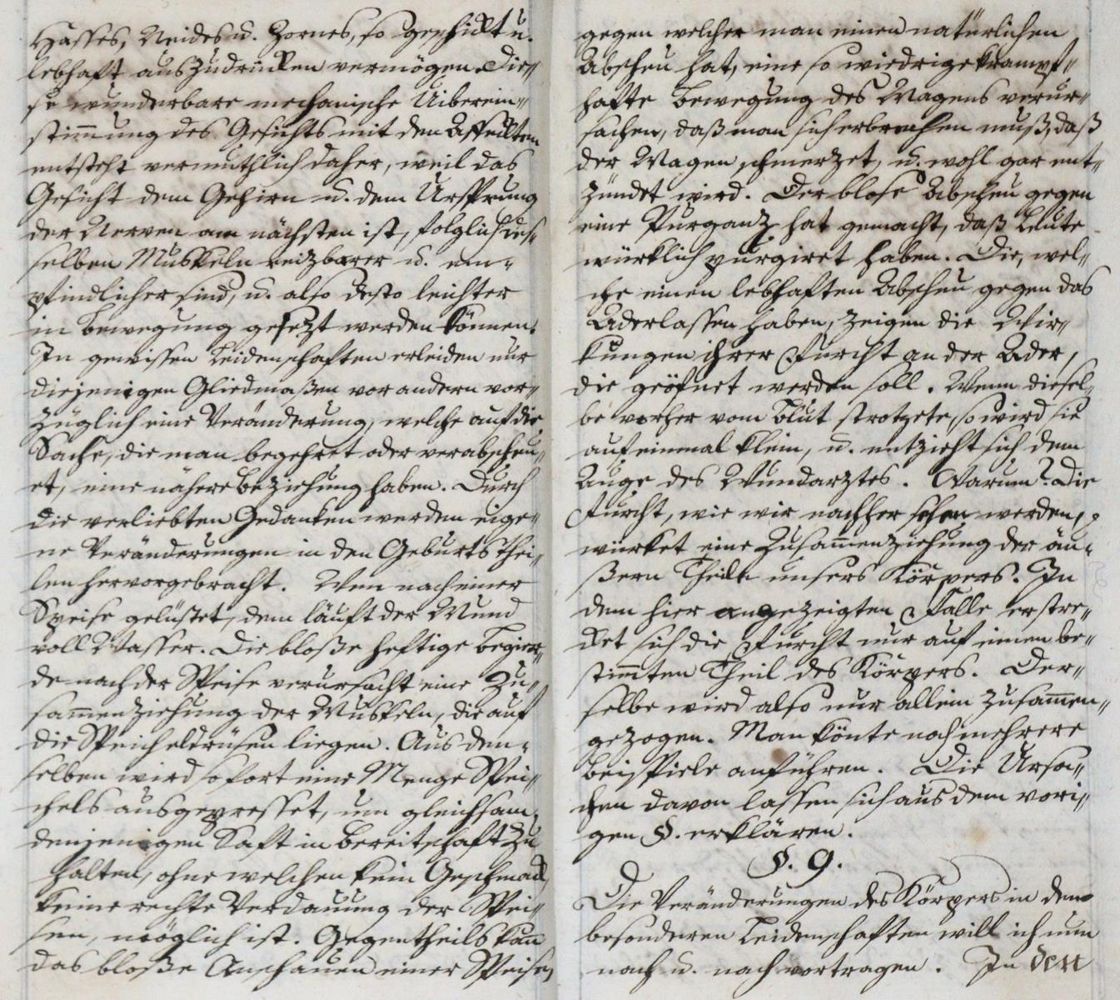 Hasses, Neides u. Zornes, so geschikt u.
lebhaft auszudrücken vermögen. Die-
se wunderbare mechanische Uiberein-
stim̄ung des Gesichts mit den Affeckten
entsteht vermuthlich daher, weil das
Gesicht dem Gehirn u. dem Ursprung
der Nerven am nächsten ist, folglich des-
selben Muskeln reizbarer u. em-
pfindlicher sind, u. also desto leichter
in Bewegung gesezt werden können.
In gewissen Leidenschaften erleiden nur
diejenigen Gliedmaßen vor andern vor-
züglich eine Veränderung, welche auf die
Sache, die man begehret oder verabscheu-
et, eine nähere Beziehung haben. Durch
die verliebten Gedanken werden eige-
ne Veränderungen in den Geburts Thei-
len hervorgebracht. Wen nach einer
Speise gelüstet, dem läuft der Mund
voll Wasser. Die bloße heftige Begier-
de nach der Speise verursacht eine Zu-
sam̄enziehung der Muskeln, die auf
die Speicheldrüsen liegen. Aus den-
selben wird sofort eine Menge Spei-
chels ausgepresset, um gleichsam
denjenigen Saft in Bereitschaft zu
halten, ohne welchen kein Geschmack,
keine rechte Verdauung der Spei-
sen, möglich ist. Gegentheils kan̄
das bloße Anschauen einer Speise,
gegen welcher man einen natürlichen
Abscheu hat, eine so wiedrige krampf-
hafte Bewegung des Magens verur-
sachen, daß man sich erbrechen muß, daß
der Magen schmerzet, u. wohl gar ent-
zündet wird. Der blose Abscheu gegen
eine Purganz hat gemacht, daß Leute
würklich purgiret haben. Die, wel-
che einen lebhaften Abscheu gegen das
Aderlassen haben, zeigen die Wir-
kungen ihrer Furcht an der Ader,
die geöfnet werden soll. Wenn diesel-
be vorher vom Blut strotzete, so wird sie
auf einmal klein, u. entzieht sich dem
Auge des Wundarztes. Warum? Die
Furcht, wie wir nachher sehen werden,
würket eine Zusam̄enziehung der äu-
ßern Theile unsers Körpers. In
dem hier angezeigten Falle erstre-
ket sich die Furcht nur auf einen be-
stim̄ten Theil des Körpers. Der-
selbe wird also nur allein zusam̄en-
gezogen. Man könte noch mehrere
Beispiele anführen. Die Ursa-
chen davon lassen sich aus dem vori-
gen §. erklären.
§. 9.
Die Veränderungen des Körpers in den
besonderen Leidenschaften will ich nun
nach u. nach vortragen. In den